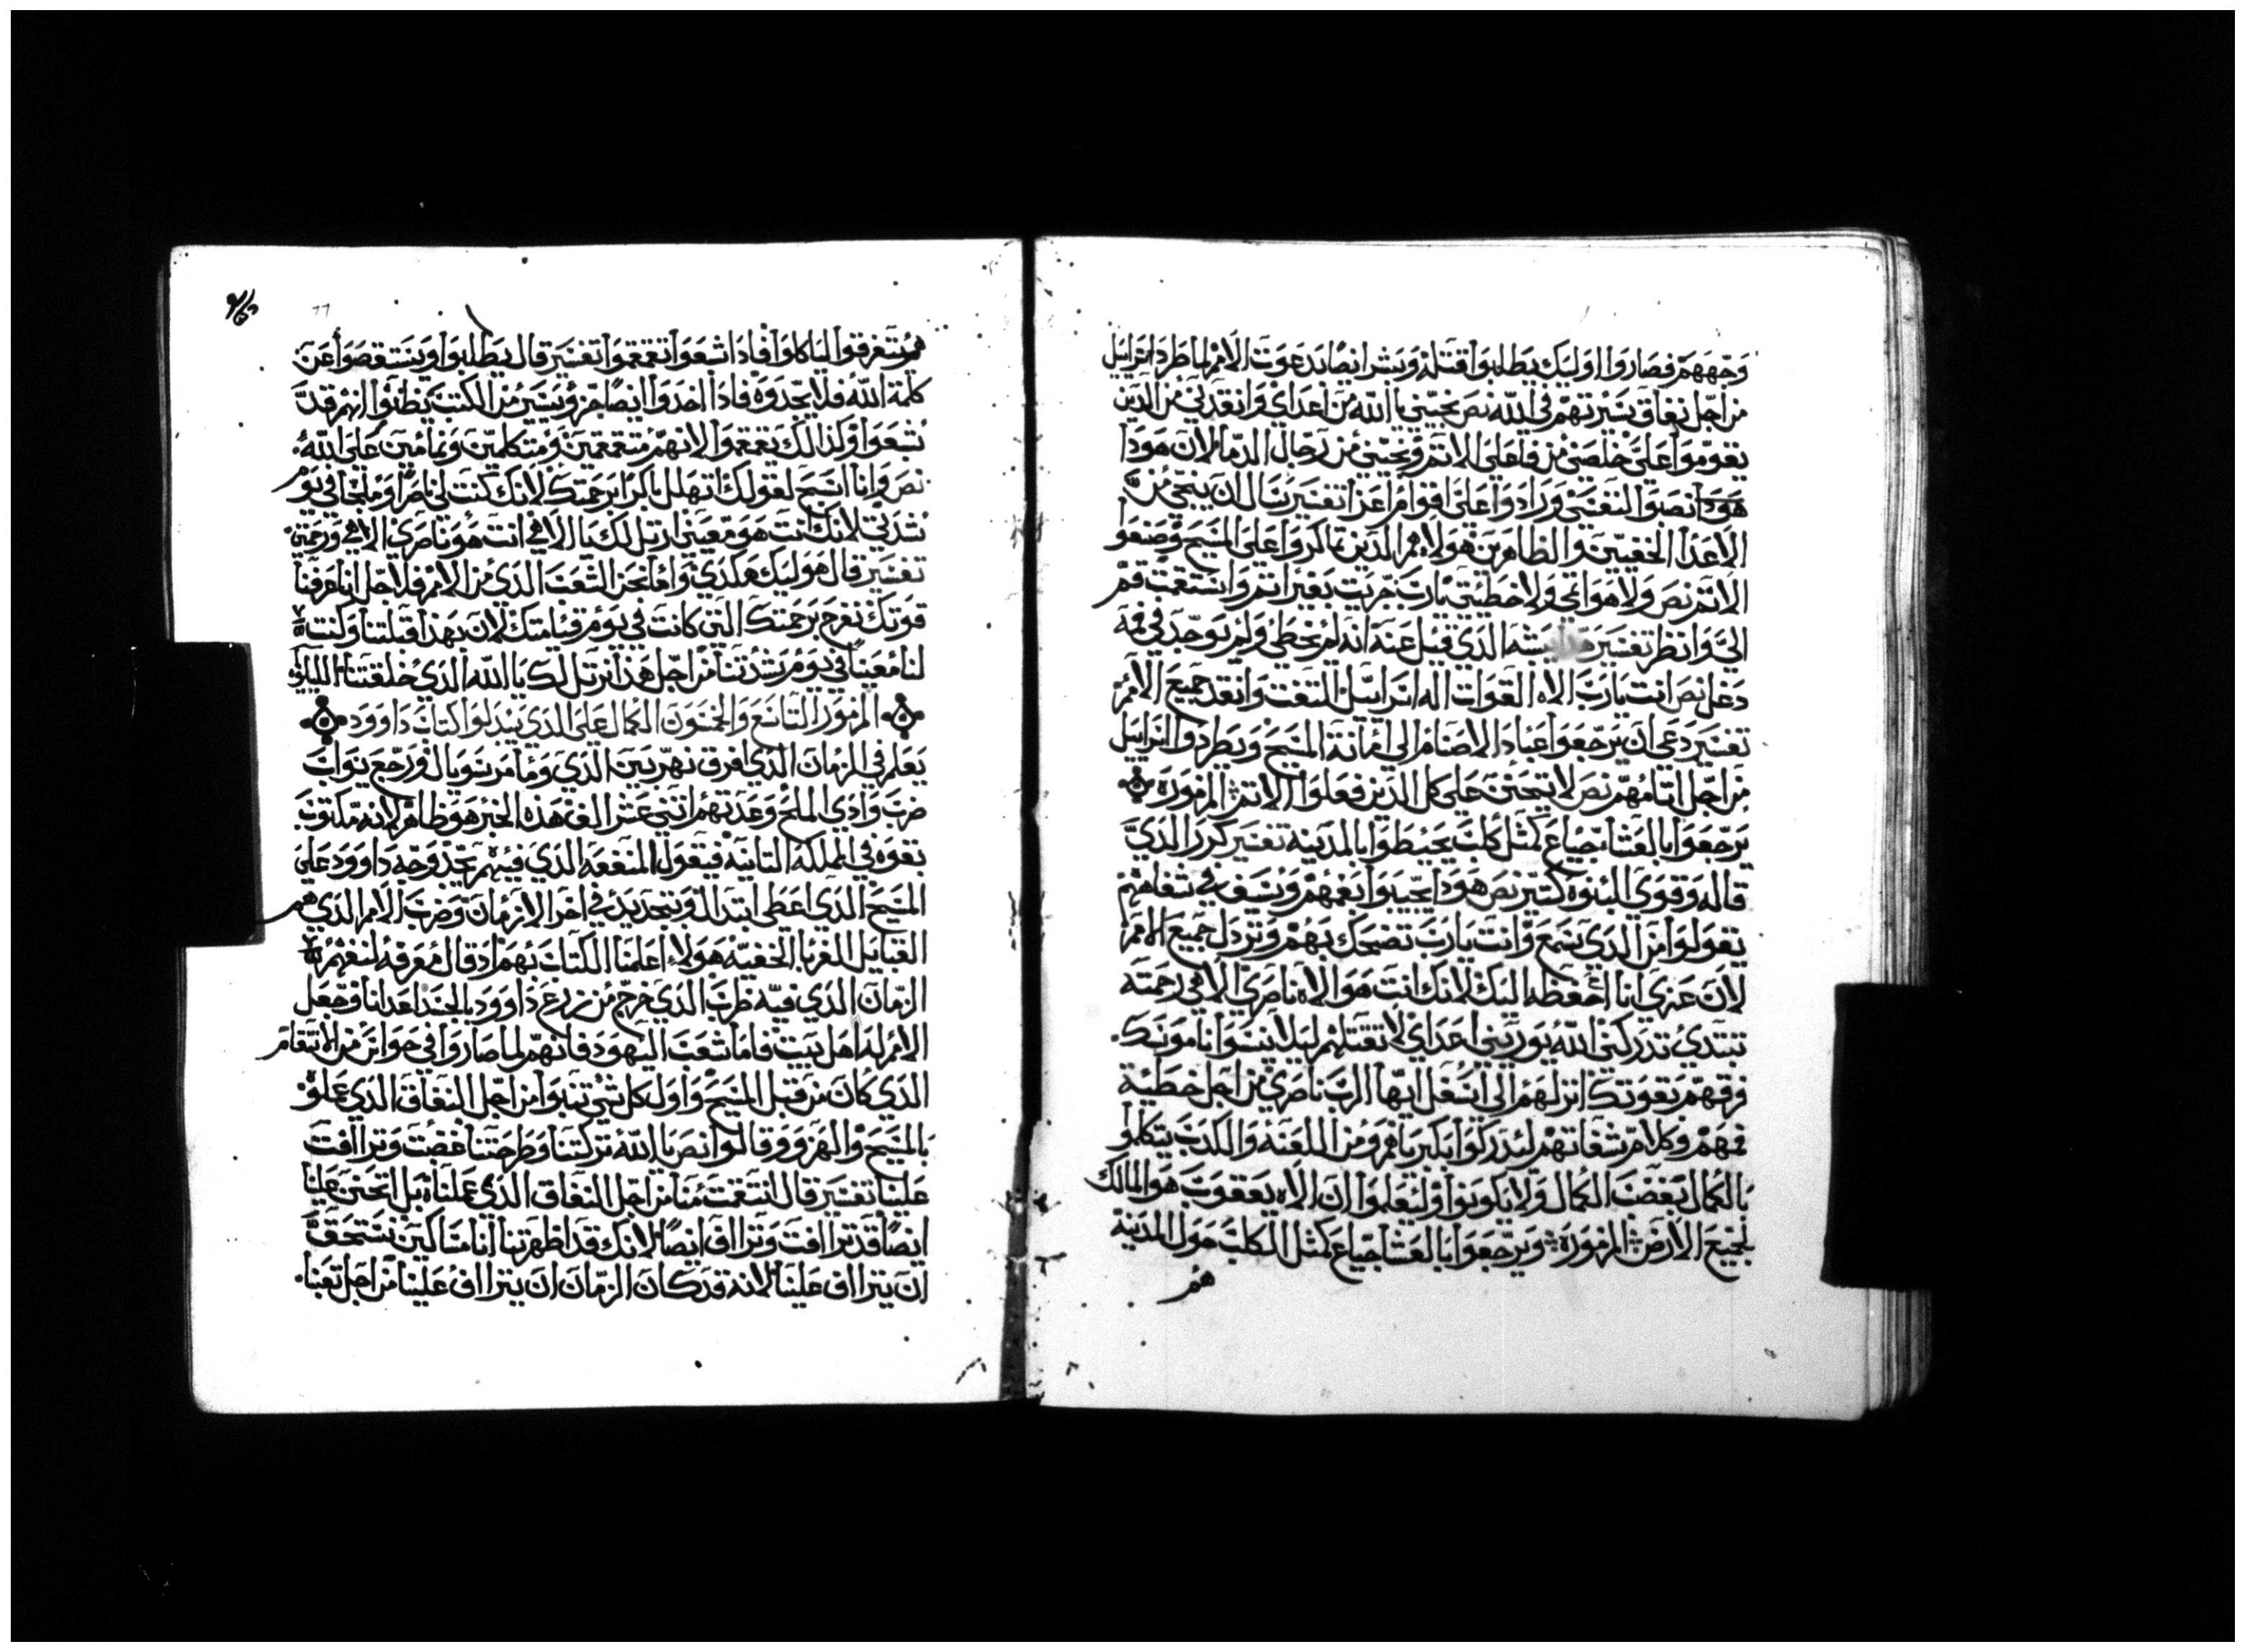 وجههم فصاروا اوليك يطلبوا قتله وبشر ايضا بدعوت الامم لما طرد اسراييل
من اجل نفاق سيرتهم في الله نص نجيني يا الله من اعداي وانقدني من الدين
يقوموا علي خلصني من فاعلي الاتم ونجيني من رجال الدما لان هودا
هودا نصبوا لنفسي وزادوا علي اقوام اعزا تفسير يسال ان ينجي من
الاعدا الخفيين والظاهرين هولاء هم الدين تمالروا علي المسيح وصنعوا
الاتم نص ولا هو اتمي ولا خطيتي يارب جريت بغير اتم واستقمت قم
الي وانظر تفسير الدي قيل عنه انه لم يخطي ولم يوجد في فمه
دغل نص انت يارب الاه القوات اله اسراييل التفت وانقد جميع الامم
تفسير دعي ان يرجعوا عباد الاصنام الي امانة المسيح ويطردوا اسراييل
من اجل اتامهم نص لا تتحنن علي كل الدين فعلوا الاتم المزموره
يرجعوا بالعشا جياع كمثل كلب يحيطوا بالمدينه تفسير كرر الدي
قاله وقوي للنبوه كتير نص هودا يجيبوا بفمهم وسيف في شفاههم
يقولوا من الدي سمع وانت يارب تضحك بهم وتردل جميع الامم
لان عزي انا احفظه اليك لانك انت هو الاه ناصري الاهي رحمته
تبتدي تدركني الله يوريني اعداي لا تقتلهم ليلا ينسوا ناموسك
فرقهم بقوتك انزلهم الي اسفل ايها الرب ناصري من اجل خطية
فمهم وكلام شفاتهم ليدركوا بكبرياهم ومن اللعنه والكدب يتكلموا
بالكمال بغضب الكمال ولا يكونوا وليعلموا ان الاه يعقوب هو المالك
لجميع الارض المزموره ويرجعوا بالعشا جياع كمثل الكلب حول المدينه
هم
هم يتفرقوا لياكلوا فادا شبعوا تقمقموا تفسير قال يطلبوا ويستقصوا عن
كلمة الله فلا يجدوه فادا اخدوا ايضا جزو يسير من الكتب يظنوا انهم قد
شبعوا ولدالك يقمقموا لانهم متقمقمين ومتكلمين ونمامين علي الله
نص وانا اسبح لقولك اتهلل باكرا برحمتك لانك كنت لي ناصرا وملجاي في يوم
شدتي لانك انت هو معيني ارتل لك يا الاهي انت هو ناصري الاهي ورحمتي
تفسير قال هوليك هكدي واما نحن الشعب الدي من الامم فلاجل اننا عرفنا
قوتك نفرح برحمتك التي كانت في يوم قيامتك لان بهدا قبلتنا وكنت
لنا معينا في يوم شدتنا من اجل هدا نرتل لك يا الله الدي خلقتنا الليلويا
المزمور التاسع والخمسون الكمال علي الدي يتبدلوا كتاب داوود
يعلم في الزمان الدي افرق نهر بين الدي وما من سوبال ورجع يواب
ضرب وادي الملح وعدتهم اتني عشر الف هده الخبر هو ظاهر لانه مكتوب
بقوه في المملكه التانيه فيقول المنفعه الدي فيهم يجد وجه داوود علي
المسيح الدي اعطي ابتدال وتجديد في اخر الازمان وضرب الامم الدي هم
القبايل الغربا الخفيه هولاء اعلمنا الكتاب بهم اد قال معرفه لنفهم
الزمان الدي فيه ظرب الدي خرج من زرع داوود بالجسد اعدانا وجعل
الامم له اهل بيت فاما شعب اليهود فانهم لما صاروا في حواس من الانتقام
الدي كان من قبل المسيح واوله كل شي تنبوا من اجل النفاق الدي عملوه
بالمسيح والهزوو وقالوا نص يا الله تركتنا وطرحتنا غضبت وتراافت
علينا تفسير قال انتقمت منا من اجل النفاق الدي عملناه بل اتحنن علينا
ايضا قد ترااقت وتراا اف ايضا لانك قد اظهرتنا اننا مساكين نستحق
ان يتراا اف علينا لانه قد كان الزمان ان يتراا اف علينا من اجل تعبنا